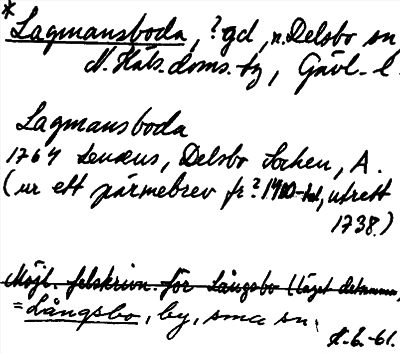 *Lagmansboda, ?gd, n. Delsbo sn
N. Häls. doms.-tg, Gävl.-l.
Lagmansboda
1764 Lenæus, Delsbo Sochen, A.
(ur ett pärmebrev fr? 1400-tal, utrett
1738.)
Möjl. felskrivn. för Långsbo (läget detsamma)
= Långsbo, by, sma sn.
-61.